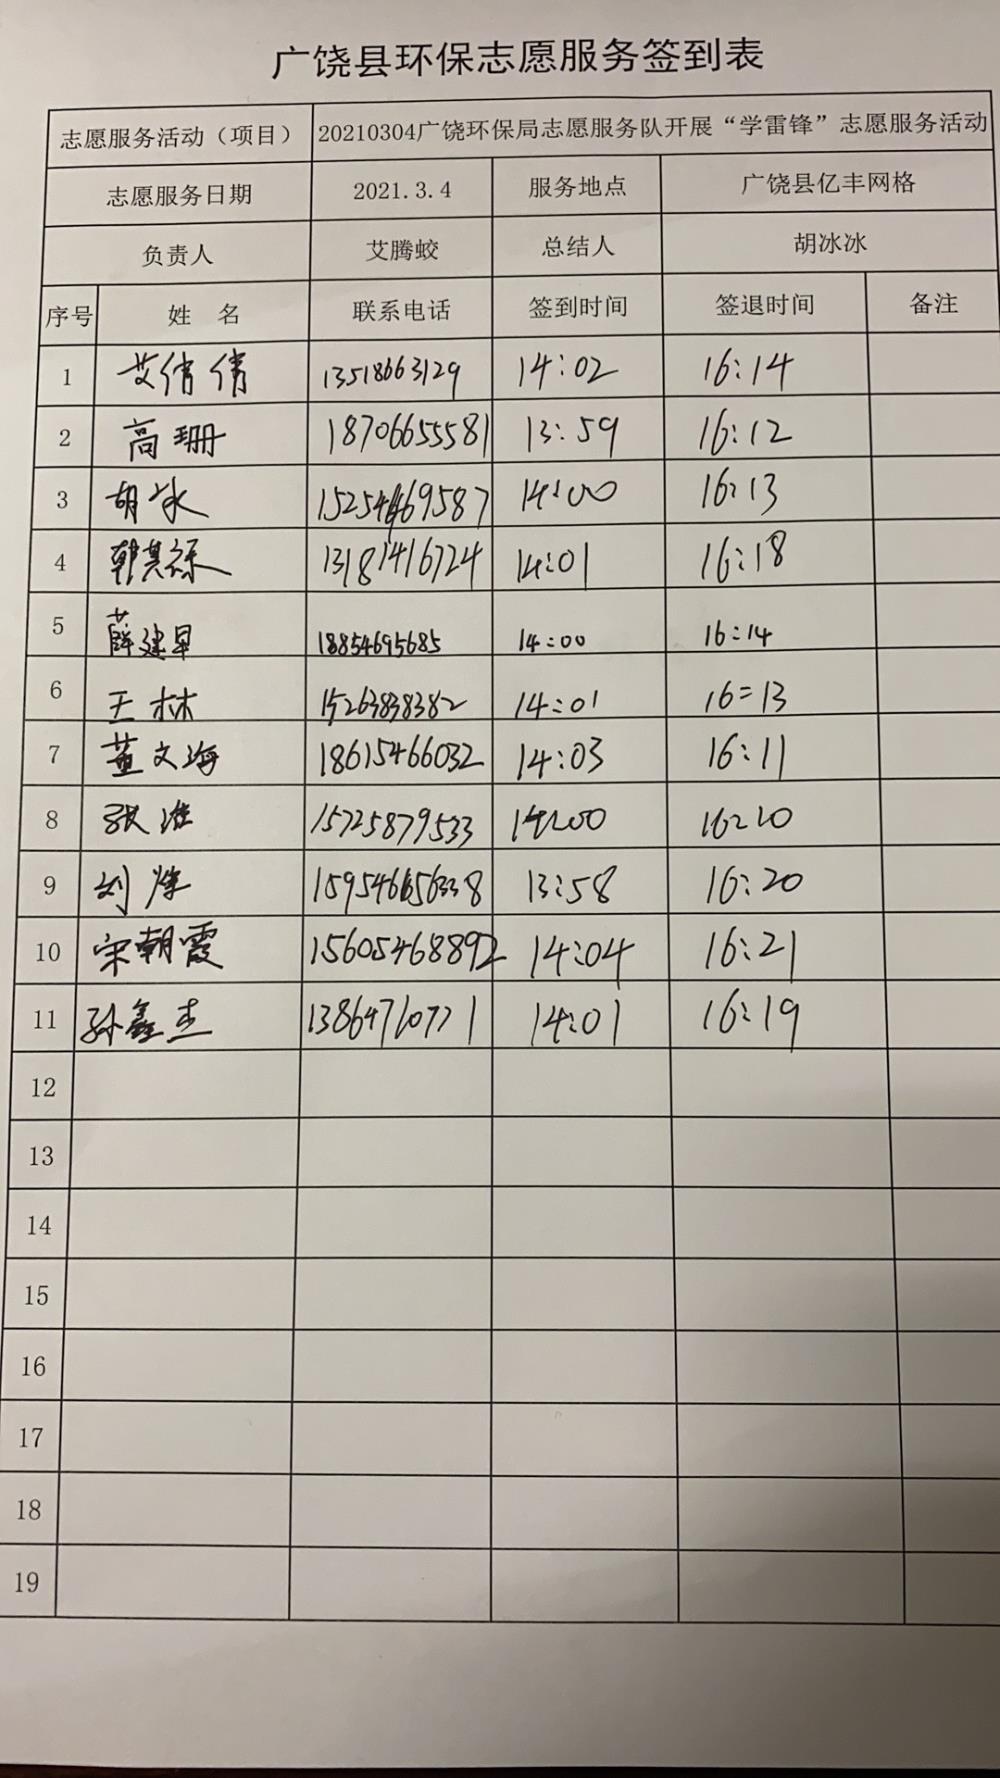 广饶县环保志愿服务签到表
志愿服务活动（项目） 20210304广饶环保局志愿服务队开展“学雷锋”志愿服务活动
志愿服务日期 2021.3.4 服务地点 广饶县亿丰网格
负责人 艾腾蛟 总结人 胡冰冰
序号 姓 名 联系电话 签到时间 签退时间 备注
1 艾倩倩 13518663129 14:02 16:14
2 高珊 18706655581 13:59 16:12
3 胡冰 14:00 16:13
4 13181416724 14:01 16:18
5 薛建早 18854695685 14:00 16:14
6 王林 15263838382 14:01 16:13
7 董文海 18615466032 14:03 16:11
8 15725879533 14:00 16:20
9 刘 13:58 16:20
10 宋朝霞 15605468892 14:04 16:21
11 孙鑫杰 13864710771 14:01 16:19
12
13
14
15
16
17
18
19